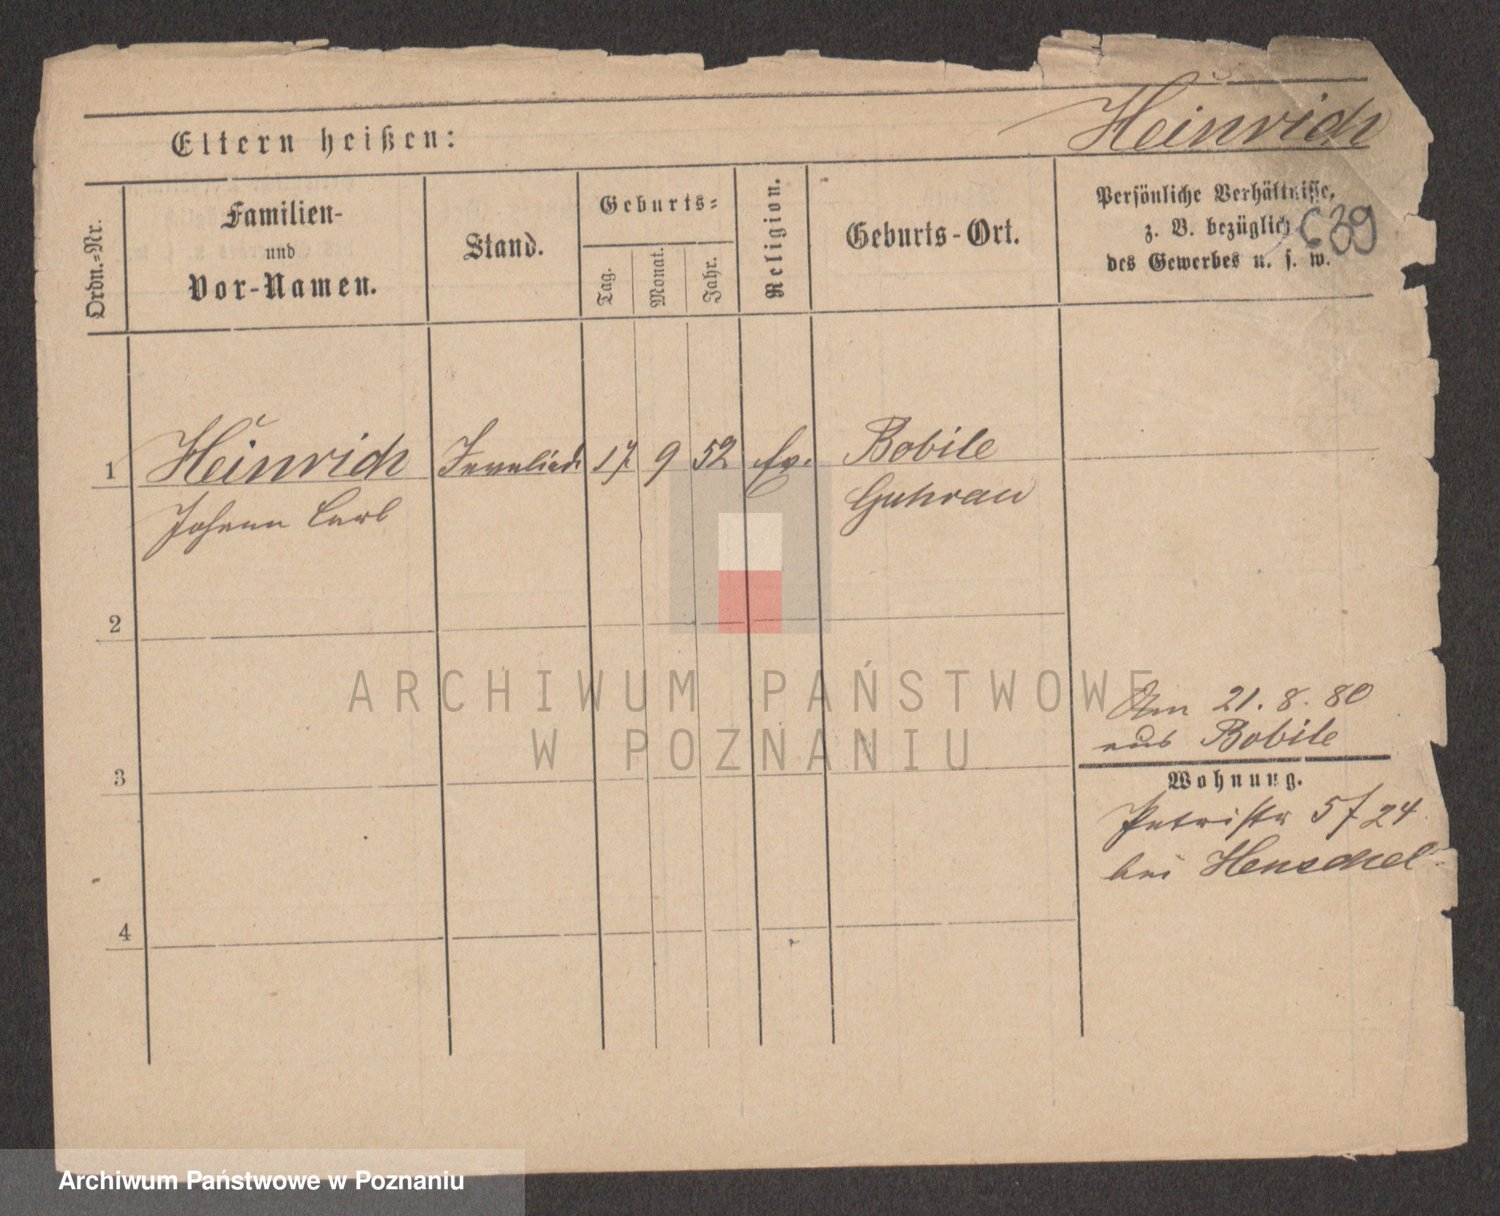 Heinrich
Eltern heißen:
Ordn.-Nr.
Familien-
und
Vor-Namen.
Stand.
Geburts-
Tag.
Monat.
Jahr.
Religion.
Geburts-Ort.
Persönliche Verhältnisse,
z. B. bezüglich
des Gewerbes u. s. w.
C 39
1 Heinrich 17 9 52 Ev. Bobile
Johann Carl Guhrau
2
ARCHIWUM PAŃSTWOWE
W POZNANIU
Am 21. 8. 80
aus Bobile
3
Wohnung.
Petristr 5 f 24
bei Henschel
4
Archiwum Państwowe w Poznaniu